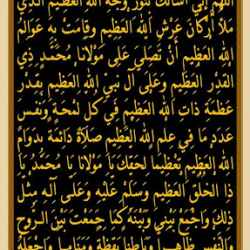 اللهم إني أسألك بنور وجه الله العظيم الذي
ملأ أركان عرش الله العظيم وقامت به عوالم
الله العظيم أن تصلي على مولانا محمد ذي
القدر العظيم وعلى آل نبي الله العظيم بقدر
عظمة ذات الله العظيم في كل لمحة ونفس
عدد ما في علم الله العظيم صلاة دائمة بدوام
الله العظيم تعظيما لحقك يا مولانا يا محمد يا
ذا الخلق العظيم وسلم عليه وعلى آله مثل
ذلك واجمع بيني وبينه كما جمعت بين الروح
والنفس ظاهرا وباطنا يقظة ومناما واجعله